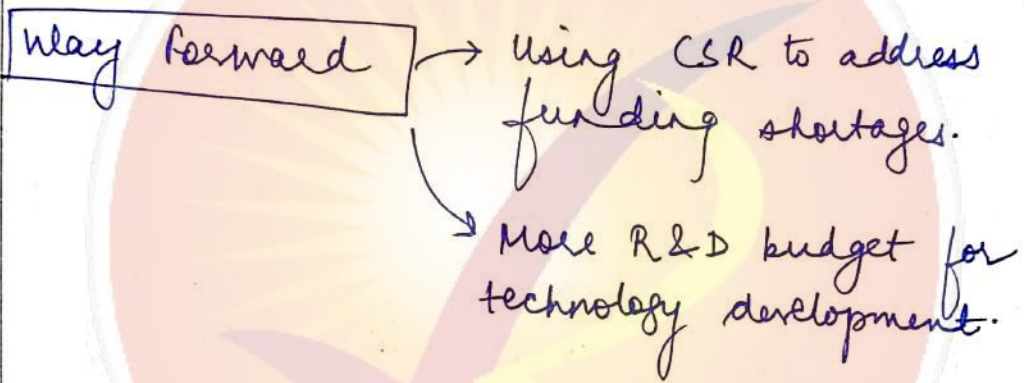 Way Forward
Using CSR to address
funding shortages.
More R&D budget for
technology development.